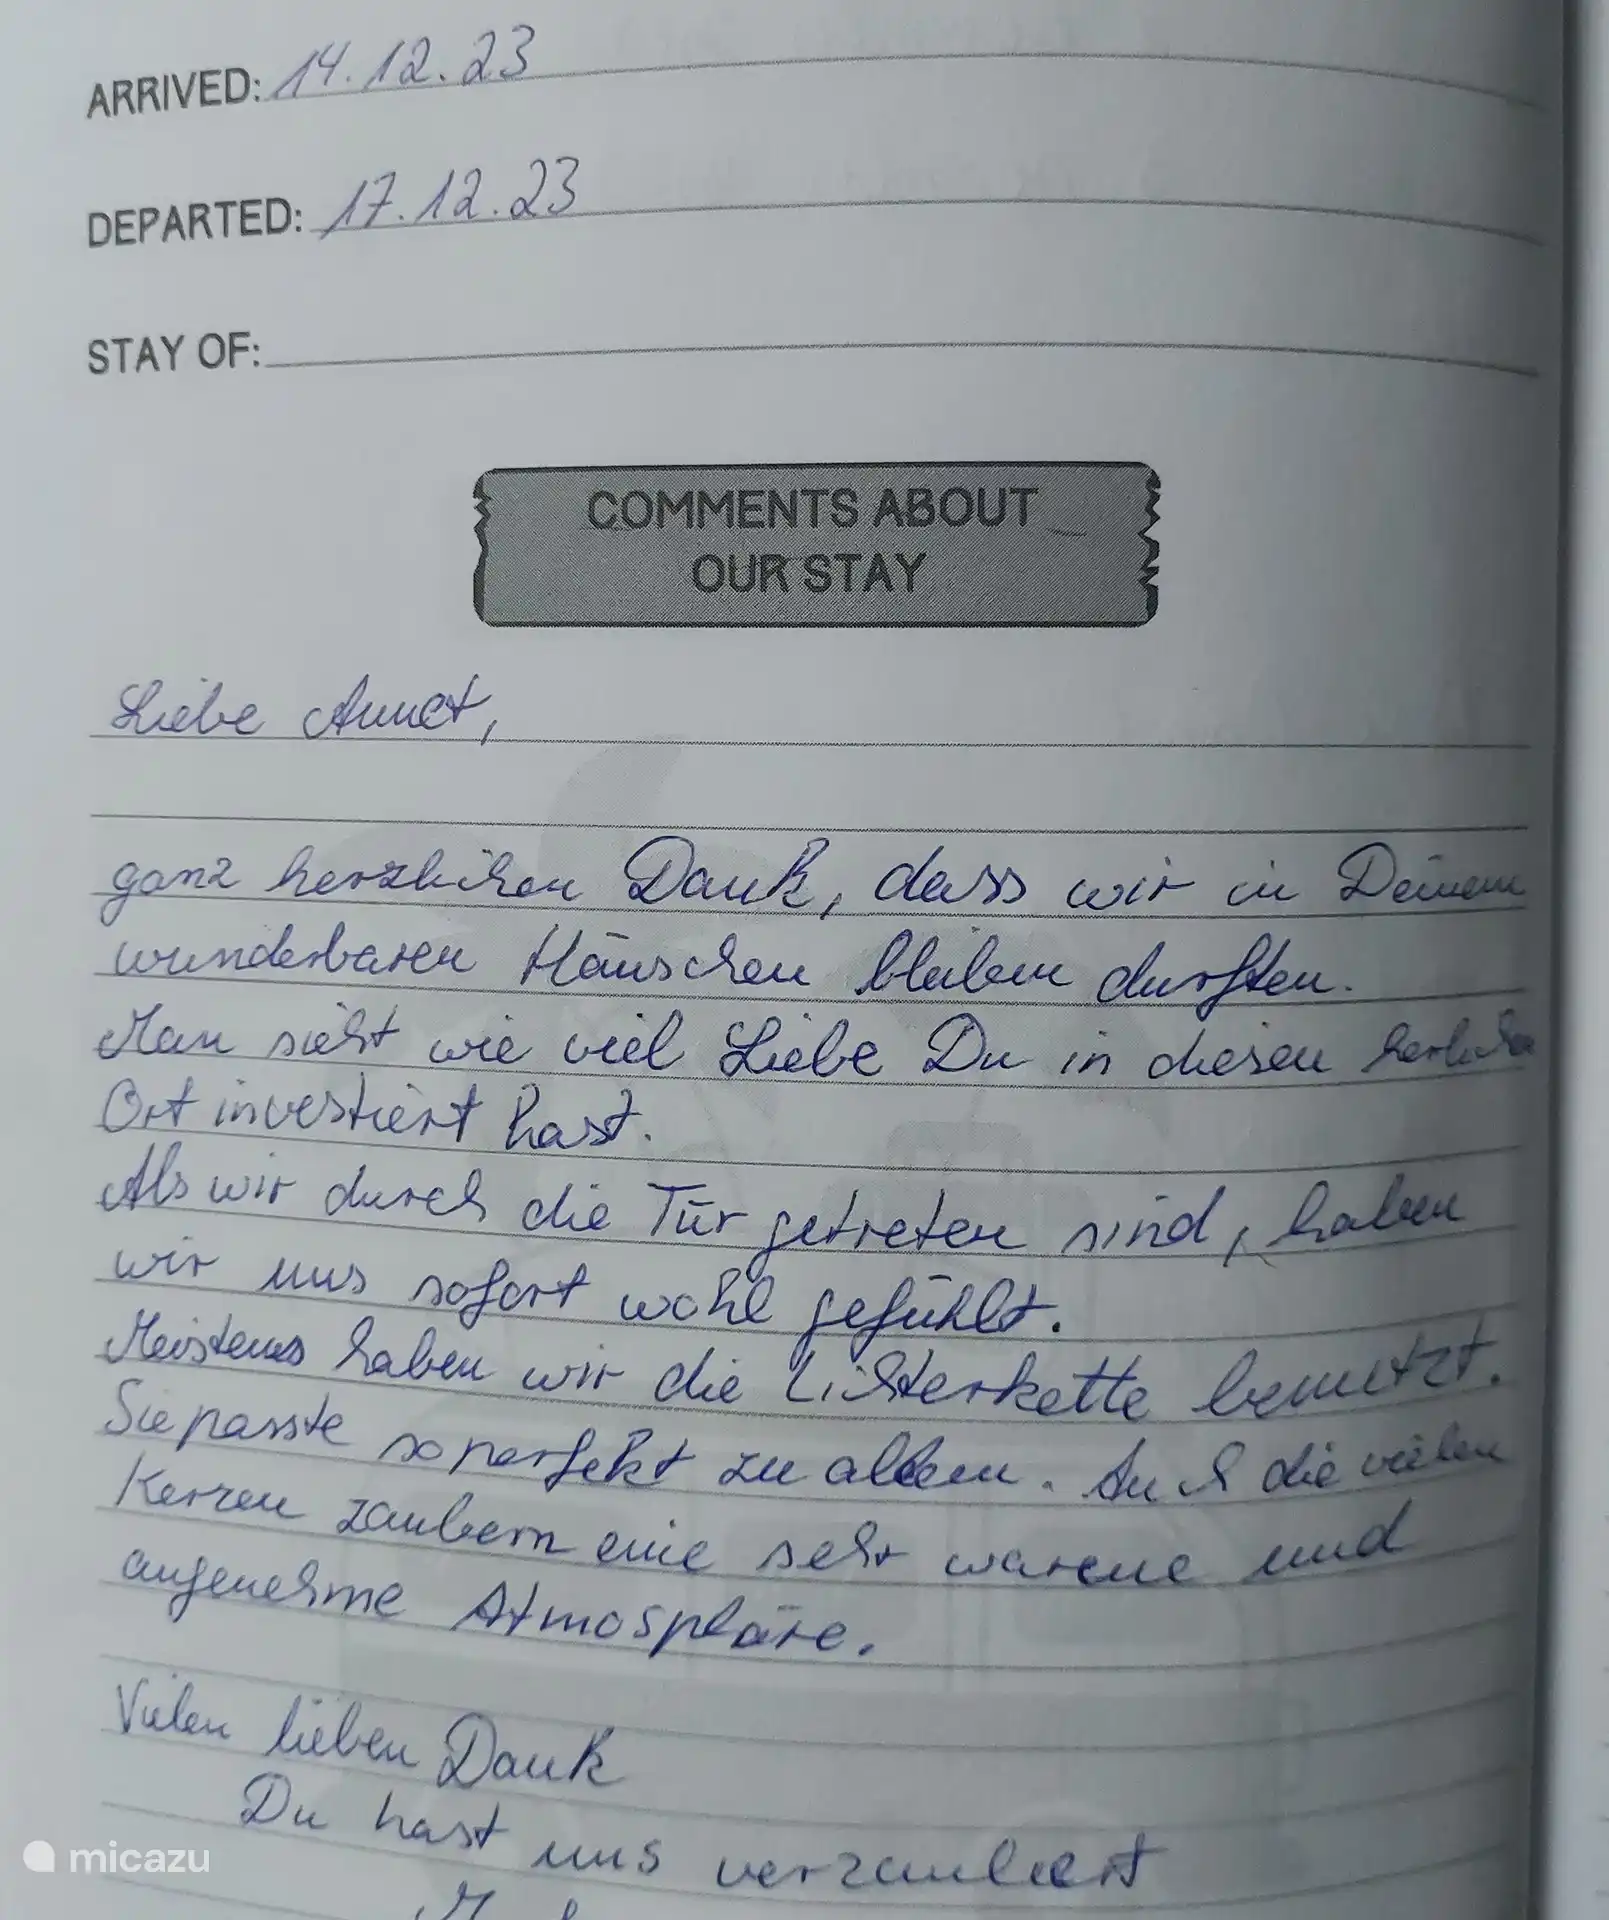 ARRIVED: 14.12.23
DEPARTED: 17.12.23
STAY OF:
COMMENTS ABOUT
OUR STAY
Liebe Annet,
ganz herzlichen Dank, dass wir in Deinem
wunderbaren Häuschen bleiben durften.
Man sieht wie viel Liebe Du in diesen
Ort investiert hast.
Als wir durch die Tür getreten sind, haben
wir uns sofort wohl gefühlt.
Meistens haben wir die Lichterkette benutzt.
Sie passte so perfekt zu allem. Auch die vielen
Kerzen zaubern eine sehr warme und
angenehme Atmosphäre.
Vielen lieben Dank
Du hast uns verzaubert
micazu